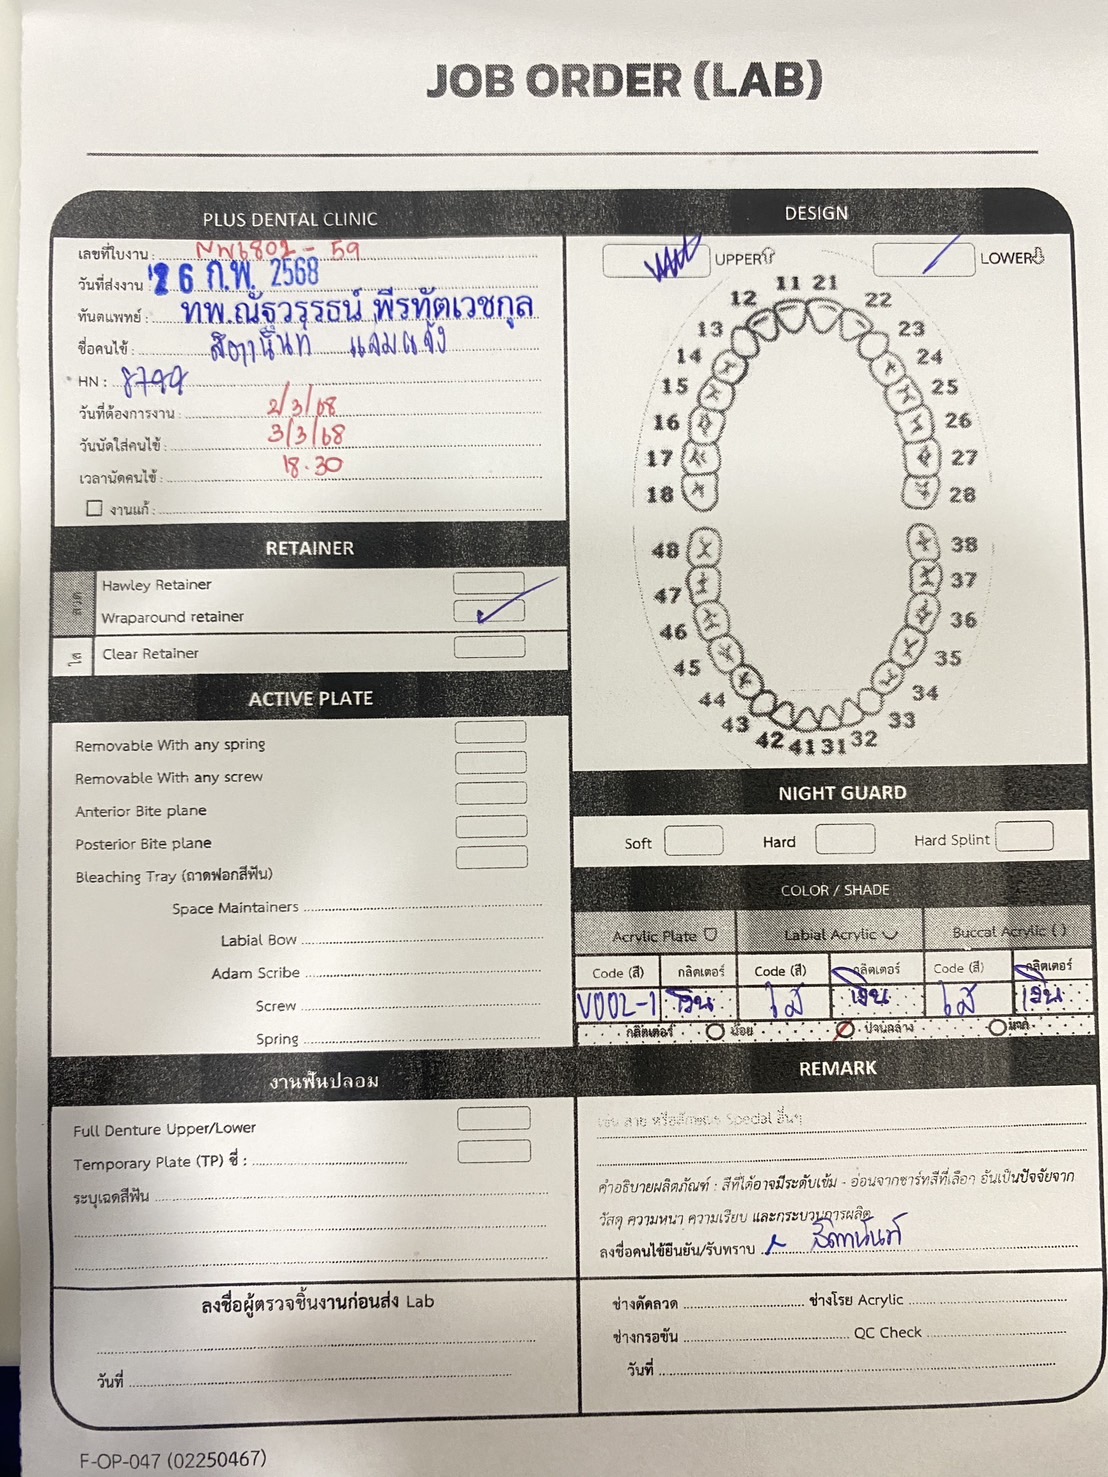 JOB ORDER (LAB)
PLUS DENTAL CLINIC
เลขที่ใบงาน : NW6802-59
วันที่ส่งงาน : 26 ก.พ. 2568
ทันตแพทย์ : ทพ.ณัฐวรรธน์ พีรทัตเวชกูล
ชื่อคนไข้ : แจ่มแจ้ง
HN : 8799
วันที่ต้องการงาน : 2/3/68
วันนัดใส่คนไข้ : 3/3/68
เวลานัดคนไข้ : 18.30
งานแก้ :
RETAINER
ลวด
Hawley Retainer
Wraparound retainer
ใส
Clear Retainer
ACTIVE PLATE
Removable With any spring
Removable With any screw
Anterior Bite plane
Posterior Bite plane
Bleaching Tray (ถาดฟอกสีฟัน)
Space Maintainers
Labial Bow
Adam Scribe
Screw
Spring
งานฟันปลอม
Full Denture Upper/Lower
Temporary Plate (TP) ซี่ :
ระบุเฉดสีฟัน
ลงชื่อผู้ตรวจชิ้นงานก่อนส่ง Lab
วันที่
DESIGN
UPPER LOWER
11 21
12 22
13 23
14 24
15 25
16 26
17 27
18 28
48 38
47 37
46 36
45 35
44 34
43 33
42 41 31 32
NIGHT GUARD
Soft Hard Hard Splint
COLOR / SHADE
Acrylic Plate Labial Acrylic Buccal Acrylic ( )
Code (สี) กลิตเตอร์ Code (สี) กลิตเตอร์ Code (สี) กลิตเตอร์
V002-1 เงิน ใส เงิน ใส เงิน
กลิตเตอร์ น้อย ปานกลาง มาก
REMARK
เช่น ลาย หรือลักษณะ Special อื่นๆ
คำอธิบายผลิตภัณฑ์ : สีที่ได้อาจมีระดับเข้ม - อ่อนจากชาร์ทสีที่เลือก อันเป็นปัจจัยจาก
วัสดุ ความหนา ความเรียบ และกระบวนการผลิต
ลงชื่อคนไข้ยืนยัน/รับทราบ
ช่างดัดลวด ช่างโรย Acrylic
ช่างกรอขัน QC Check
วันที่
F-OP-047 (02250467)